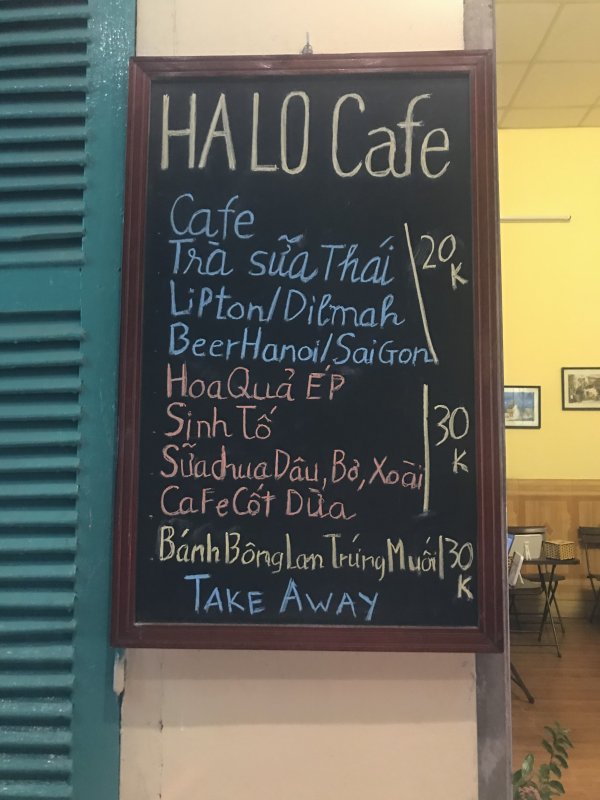 HALO Cafe
Cafe
Trà sữa Thái
Lipton/Dilmah
Beer Hanoi/SaiGon
20
K
Hoa Quả ÉP
Sinh Tố
Sữa chua Dâu, Bơ, Xoài
CaFe Cốt Dừa
30
K
Bánh Bông Lan Trứng Muối
30
K
TAKE AWAY